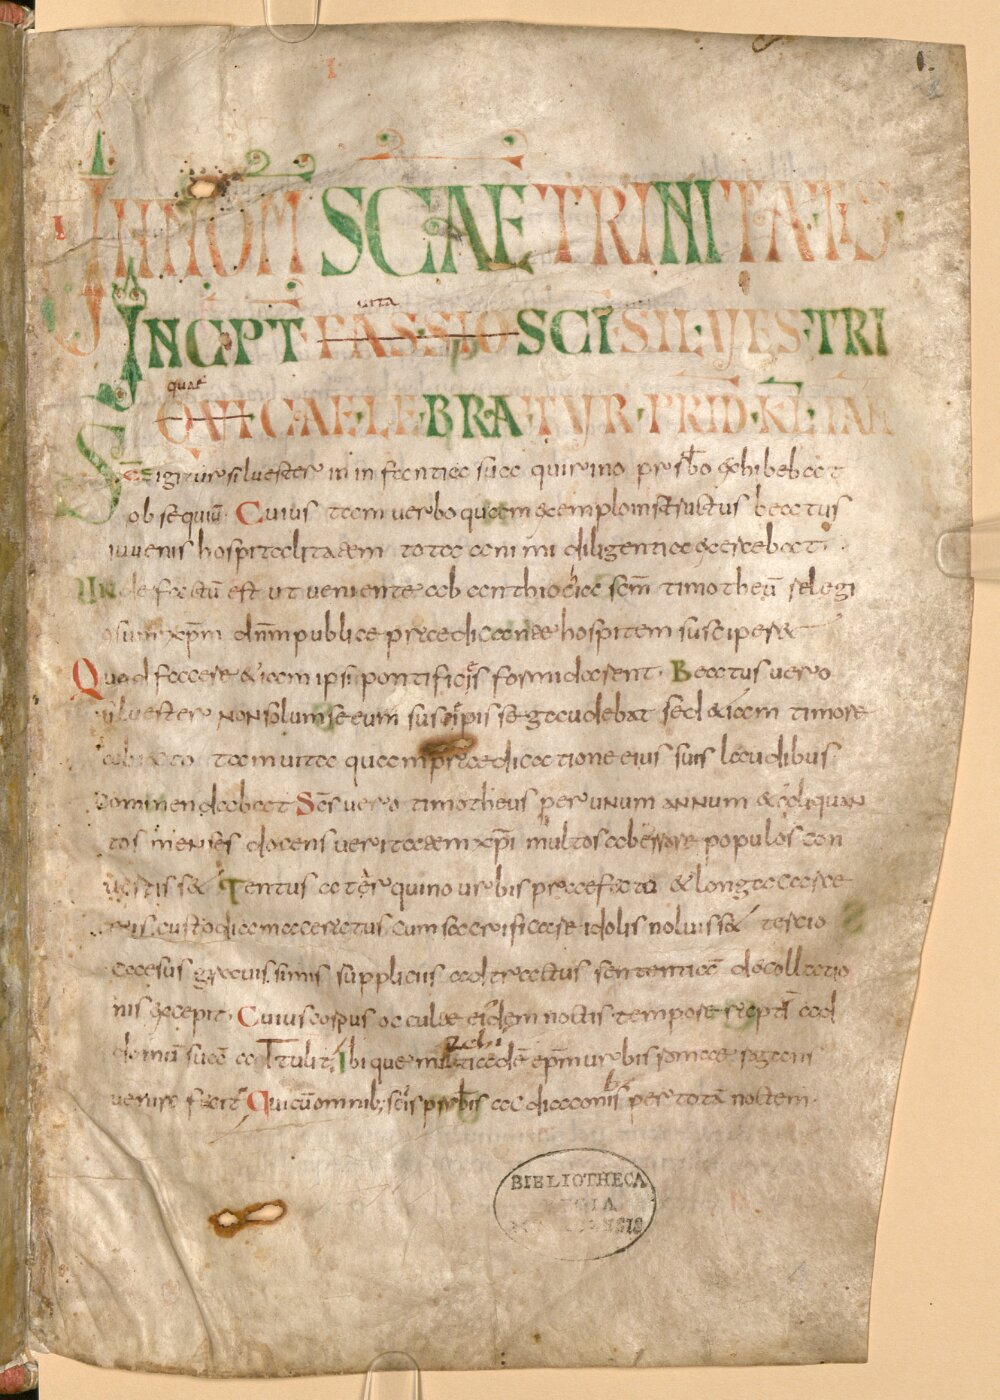 I
1.
IN NOM SCAE TRINITATIS
uita
INCPT PASSIO SCI SILVESTRI
quae
QVI CAELEBRATVR PRID KL IAN
igitur silvester in infantia sua quirino prsbo exhibebat
obsequiū. Cuius tam verbo quam exemplo instructus beatus
iuvenis hospitalitatem tota animi diligentia exercebat.
Unde factū est ut veniente ab anthiochia scm timotheū
xpm dnm publice praedicantem hospitem susciperet
Quod facere etiam ipsi pontifices formidarent. Beatus vero
silvester non solum se eum suscepisse gaudebat sed etiam timore
tam vita quam praedicatione eius suis laudibus
commendabat Scs vero timotheus per unum annum et aliquan
tos menses docens veritatem xpi multos ab errore populos con
vertisset Tentus a tarquino urbis praefecto et longa carce
ris custodia maceratus cum sacrificare idolis noluisset tercio
caesus gravissimis suppliciis adtractus sententiā decollatio
nis excepit. Cuius corpus occulte eidem noctis tempore ad
domū suā adtulit. Ibique
venire fecit Qui cū omnib; scis prsbis ac diaconibus per totā noctem.
BIBLIOTHECA
REGIA
MONACENSIS